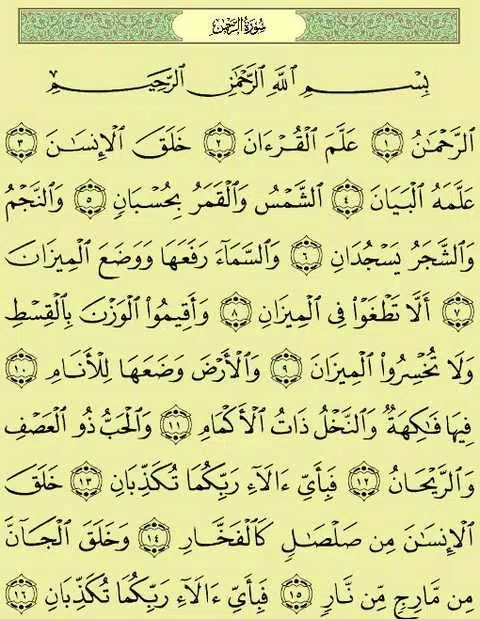 سُورَةُ الرَّحْمَٰن
بِسْمِ ٱللَّهِ ٱلرَّحْمَٰنِ ٱلرَّحِيمِ
ٱلرَّحْمَٰنُ ١ عَلَّمَ ٱلْقُرْءَانَ ٢ خَلَقَ ٱلْإِنسَٰنَ ٣
عَلَّمَهُ ٱلْبَيَانَ ٤ ٱلشَّمْسُ وَٱلْقَمَرُ بِحُسْبَانٍ ٥ وَٱلنَّجْمُ
وَٱلشَّجَرُ يَسْجُدَانِ ٦ وَٱلسَّمَآءَ رَفَعَهَا وَوَضَعَ ٱلْمِيزَانَ
٧ أَلَّا تَطْغَوْا۟ فِى ٱلْمِيزَانِ ٨ وَأَقِيمُوا۟ ٱلْوَزْنَ بِٱلْقِسْطِ
وَلَا تُخْسِرُوا۟ ٱلْمِيزَانَ ٩ وَٱلْأَرْضَ وَضَعَهَا لِلْأَنَامِ ١٠
فِيهَا فَٰكِهَةٌ وَٱلنَّخْلُ ذَاتُ ٱلْأَكْمَامِ ١١ وَٱلْحَبُّ ذُو ٱلْعَصْفِ
وَٱلرَّيْحَانُ ١٢ فَبِأَىِّ ءَالَآءِ رَبِّكُمَا تُكَذِّبَانِ ١٣ خَلَقَ
ٱلْإِنسَٰنَ مِن صَلْصَٰلٍ كَٱلْفَخَّارِ ١٤ وَخَلَقَ ٱلْجَآنَّ
مِن مَّارِجٍ مِّن نَّارٍ ١٥ فَبِأَىِّ ءَالَآءِ رَبِّكُمَا تُكَذِّبَانِ ١٦